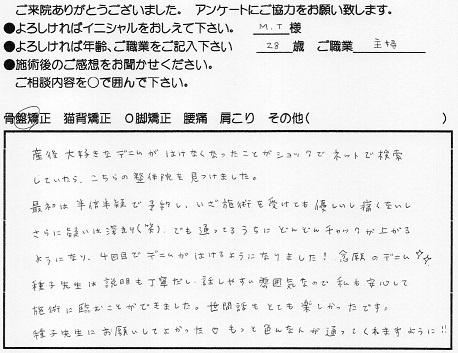 ご来院ありがとうございました。 アンケートにご協力をお願い致します。
●よろしければイニシャルをおしえて下さい。 M.T 様
●よろしければ年齢、ご職業をご記入下さい 28 歳 ご職業 主婦
●施術後のご感想をお聞かせください。
ご相談内容を〇で囲んで下さい。
骨盤矯正 猫背矯正 O脚矯正 腰痛 肩こり その他( )
産後 大好きなデニムがはけなくなったことがショックで ネットで検索
していたら、こちらの整体院を見つけました。
最初は半信半疑で予約し、いざ施術を受けても優しいし痛くないし
さらに疑いは深まり(笑)、でも通ってるうちに どんどんチャックが上がる
ようになり、4回目でデニムがはけるようになりました! 念願のデニム☆☆
種子先生は説明も丁寧だし、話しやすい雰囲気なので私も安心して
施術に臨むことができました。世間話もとても楽しかったです。
種子先生にお願いしてよかった♡もっと色んな人が通ってくれますように!!